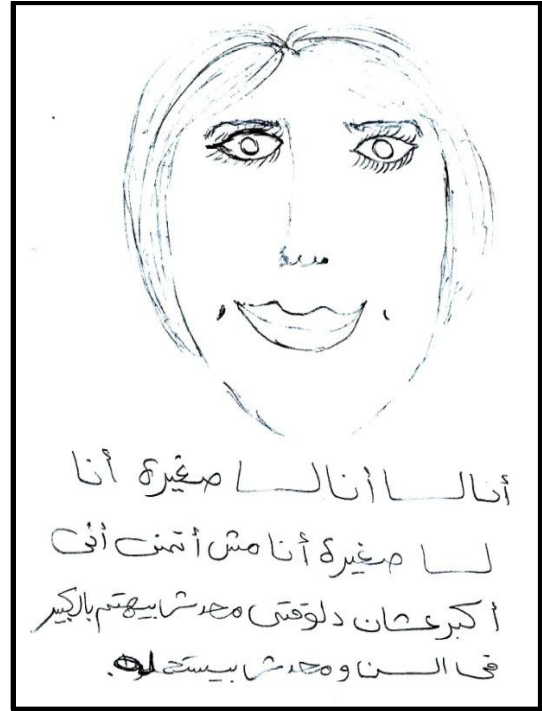 أنا لسا أنا لسا صغيرة أنا
لسا صغيرة أنا مش أتمنى أنى
أكبر عشان دلوقتى محدش بيهتم بالكبير
فى السن ومحدش بيستحمله.